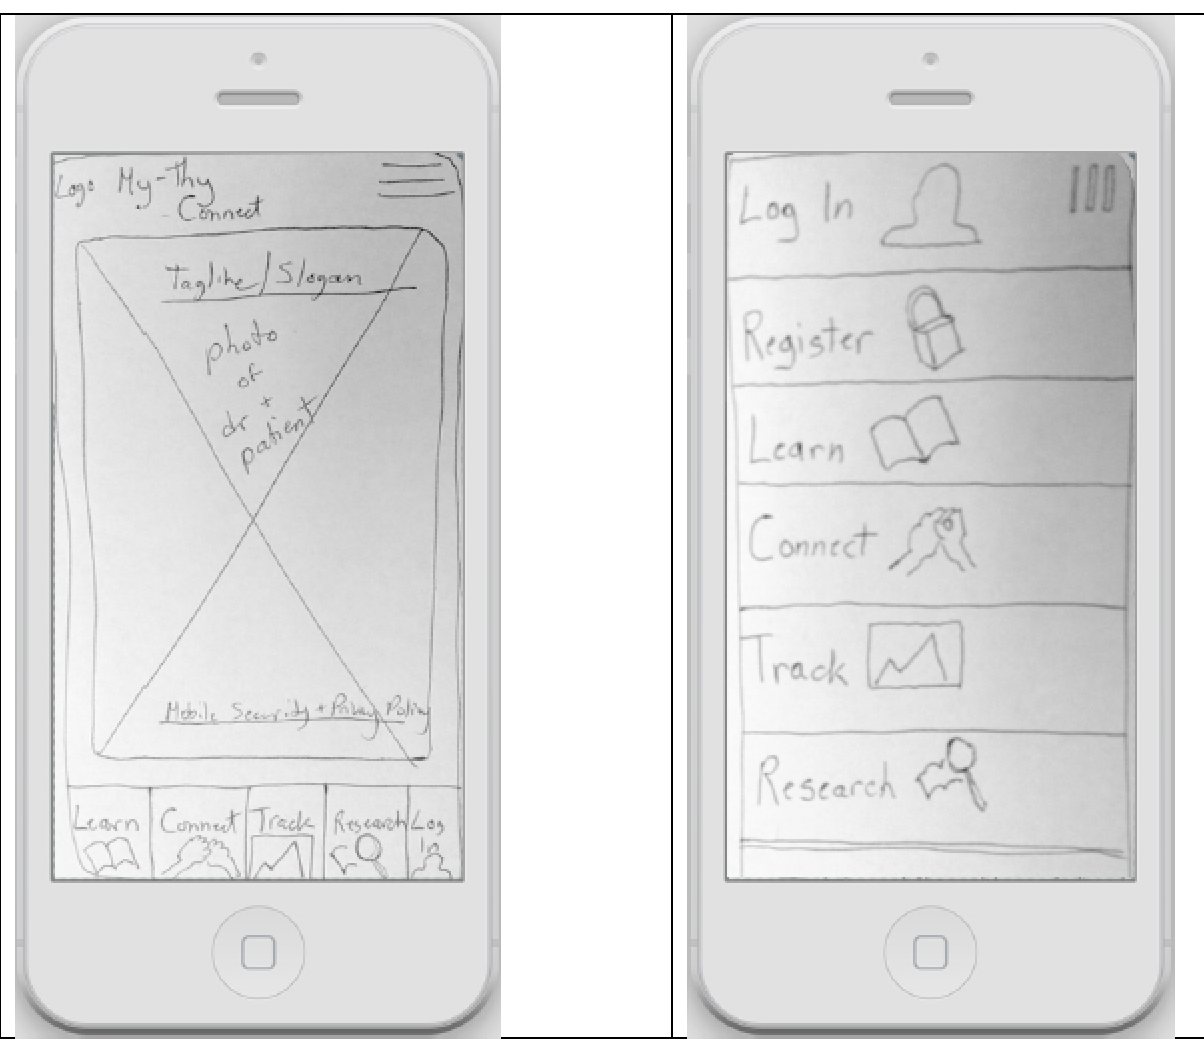 Logo My-Thy
Connect
Tagline/Slogan
photo
of
dr +
patient
Mobile Security + Privacy Policy
Learn
Connect
Track
Research
Log
In
Log In
Register
Learn
Connect
Track
Research